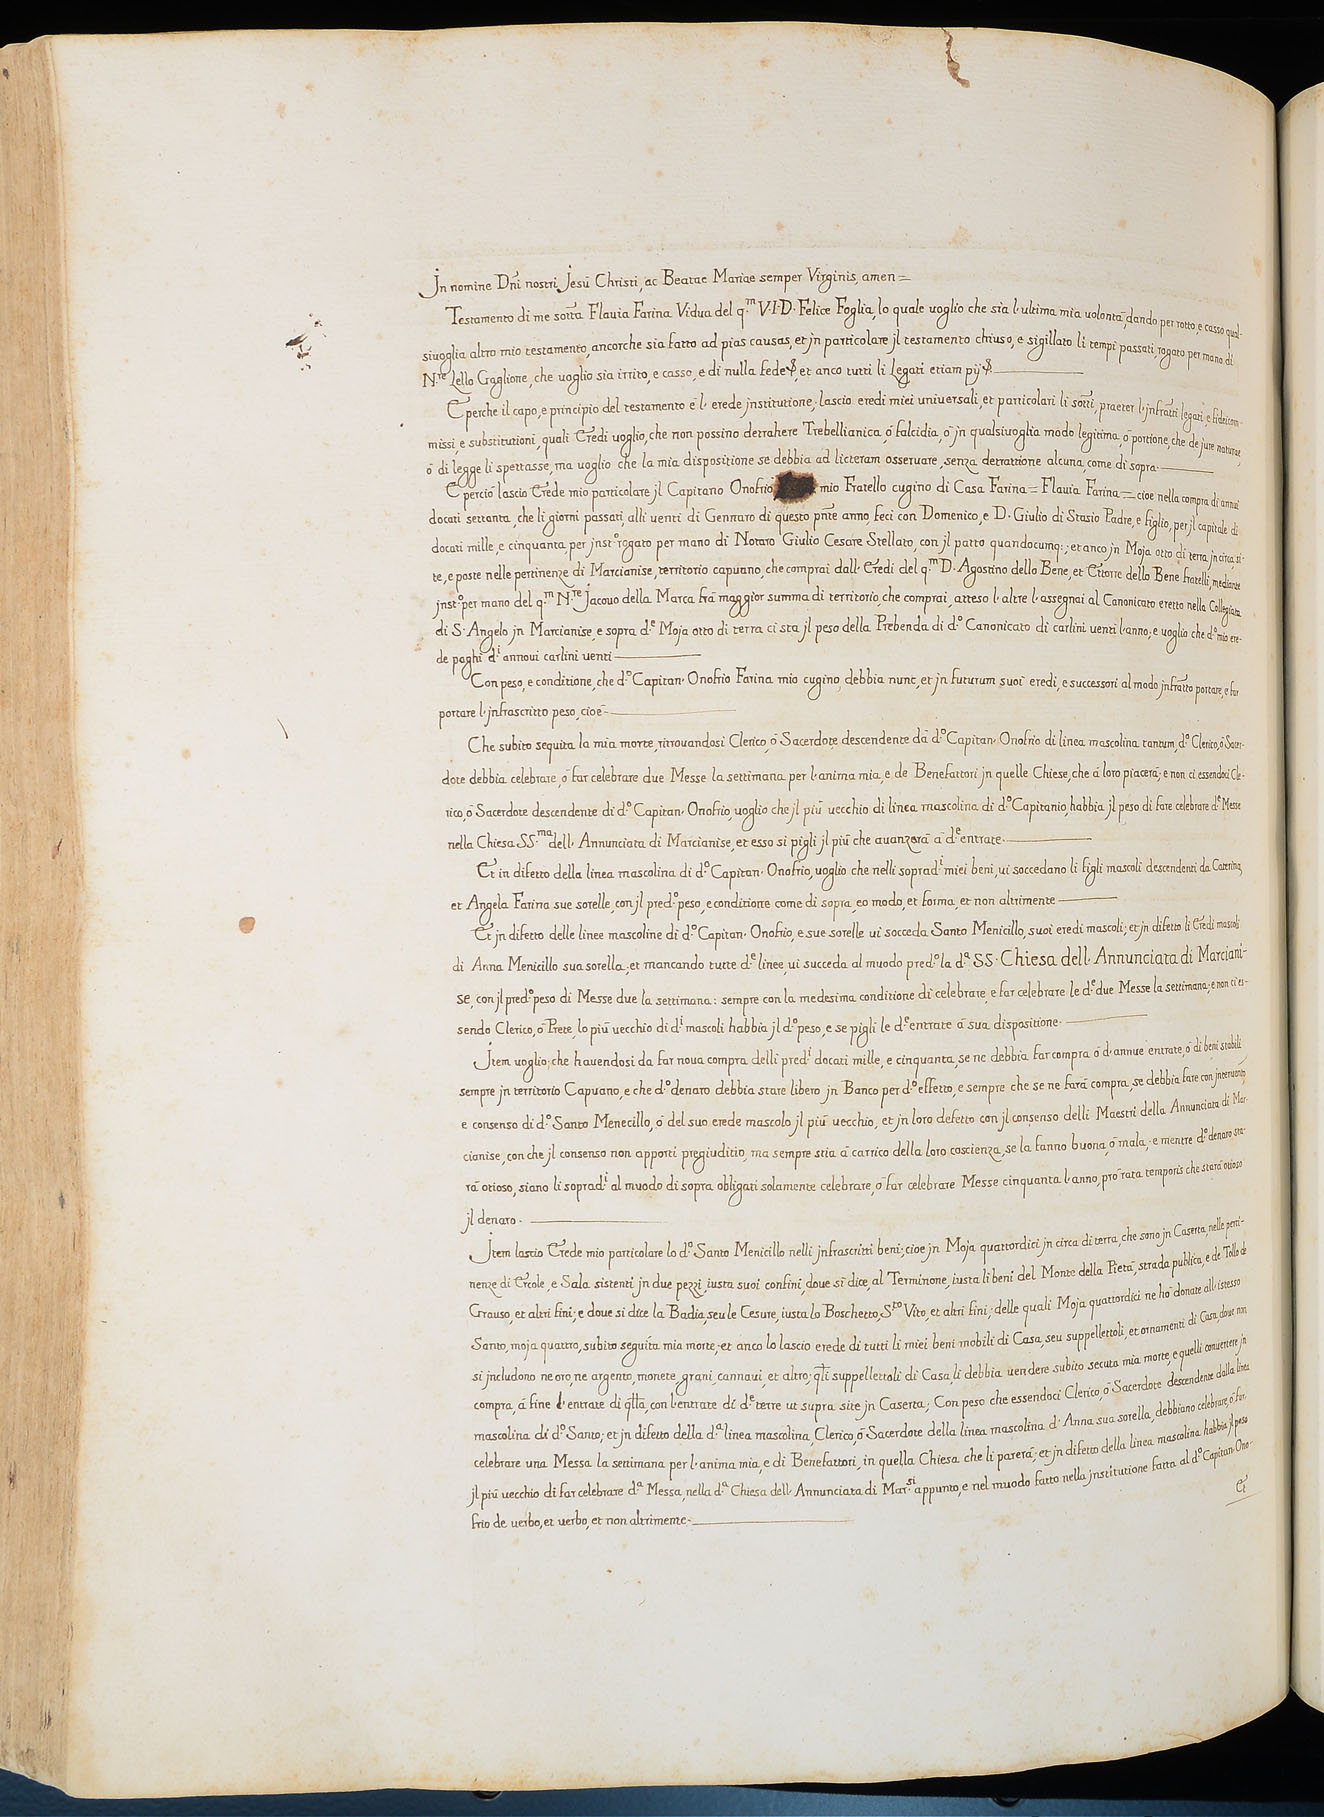 Jn nomine Dñi nostri Jesu Christi, ac Beatae Mariae semper Virginis, amen=
Testamento di me sotta Flavia Farina Vidua del q.m V.I.D. Felice Foglia, lo quale uoglio che sia l'ultima mia uolontà, dando per rotto, e casso qual-
siuoglia altro mio testamento, ancorche sia fatto ad pias causas, et jn particolare jl testamento chiuso, e sigillato li tempi passati, rogato per mano di
N.re Lello Gaglione, che uoglio sia irrito, e casso, e di nulla fede, et anco tutti li Legati etiam pij
E perche il capo, e principio del testamento è l'erede jnstitutione, lascio eredi miei universali, et particolari li sotti, praeter l'jnfratti legati, e fideicom-
missi, e substitutioni, quali Eredi uoglio, che non possino detrahere Trebellianica, ò falcidia, ò jn qualsiuoglia modo legitima, ò portione, che de jure naturae,
ò di legge li spettasse, ma uoglio che la mia dispositione se debbia ad licteram osseruare, senza detrattione alcuna, come di sopra.
E perciò lascio Erede mio particolare jl Capitano Onofrio mio Fratello cugino di Casa Farina= Flauia Farina= cioe nella compra di annui
docati settanta, che li giorni passati, alli uenti di Gennaro di questo pnte anno, feci con Domenico, e D. Giulio di Stasio Padre, e figlio, per jl capitale di
docati mille, e cinquanta, per jnst.o rogato per mano di Notaro Giulio Cesare Stellato, con jl patto quandocumq:; et anco jn Moja otto di terra jn circa si-
te, e poste nelle pertinenze di Marcianise, territorio capuano, che comprai dall'Eredi del q.m D. Agostino dello Bene, et Ettorre dello Bene fratelli, mediante
jnst.o per mano del q.m N.re Jacouo della Marca frà maggior summa di territorio, che comprai, atteso l'altre l'assegnai al Canonicato eretto nella Collegiata
di S. Angelo jn Marcianise, e sopra d.e Moja otto di terra ci sta jl peso della Prebenda di d.o Canonicato di carlini uenti l'anno, e uoglio che d.o mio ere-
de paghi d.i annoui carlini uenti
Con peso, e conditione, che d.o Capitan. Onofrio Farina mio cugino, debbia nunc, et jn futurum suoi eredi, e successori al modo jnfratto portare, e far
portare l'jnfrascritto peso, cioè
Che subito sequita la mia morte, ritrouandosi Clerico, ò Sacerdote descendente dà d.o Capitan. Onofrio di linea mascolina tantum, d.o Clerico, ò Sacer-
dote debbia celebrare, ò far celebrare due Messe la settimana per l'anima mia, e de Benefattori jn quelle Chiese, che à loro piacerà; e non ci essendoci Cle-
rico, ò Sacerdote descendente di d.o Capitan. Onofrio, uoglio che jl più uecchio di linea mascolina di d.o Capitanio, habbia jl peso di fare celebrare d.e Messe
nella Chiesa SS.ma dell'Annunciata di Marcianise, et esso si pigli jl più che auanzarà à d.e entrate.
Et in difetto della linea mascolina di d.o Capitan. Onofrio, uoglio che nelli soprad.i miei beni, ui soccedano li figli mascoli descendenti da Caterina,
et Angela Farina sue sorelle, con jl pred.o peso, e conditione come di sopra, eo modo, et forma, et non altrimente
Et jn difetto delle linee mascoline di d.o Capitan. Onofrio, e sue sorelle ui socceda Santo Menicillo, suoi eredi mascoli; et jn difetto li Eredi mascoli
di Anna Menicillo sua sorella; et mancando tutte d.e linee, ui succeda al muodo pred.o la d.a SS. Chiesa dell'Annunciata di Marciani-
se, con jl pred.o peso di Messe due la settimana: sempre con la medesima conditione di celebrare, e far celebrare le d.e due Messe la settimana; e non ci es-
sendo Clerico, ò Prete, lo più uecchio di d.i mascoli habbia jl d.o peso, e se pigli le d.e entrate à sua dispositione.
Jtem uoglio, che hauendosi da far noua compra delli pred.i docati mille, e cinquanta, se ne debbia far compra ò d'annue entrate, ò di beni stabili
sempre jn territorio Capuano, e che d.o denaro debbia stare libero jn Banco per d.o effetto, e sempre che se ne farà compra, se debbia fare con jnteruento,
e consenso di d.o Santo Menecillo, ò del suo erede mascolo jl più uecchio, et jn loro defetto con jl consenso delli Maestri della Annunciata di Mar-
cianise, con che jl consenso non apporti pregiuditio, ma sempre stia à carrico della loro coscienza, se la fanno buona, ò mala; e mentre d.o denaro sta-
rà otioso, siano li soprad.i al muodo di sopra obligati solamente celebrare, ò far celebrare Messe cinquanta l'anno, pro rata temporis che starà otioso
jl denaro.
Jtem lascio Erede mio particolare lo d.o Santo Menicillo nelli jnfrascritti beni; cioe jn Moja quattordici jn circa di terra, che sono jn Caserta, nelle perti-
nenze di Ercole, e Sala sistenti jn due pezzi, iusta suoi confini, doue si dice, al Terminone, iusta li beni del Monte della Pietà, strada publica, e de Tollo de
Grauso, et altri fini; e doue si dice la Badia, seu le Cesure, iusta lo Boschetto, S.to Vito, et altri fini; delle quali Moja quattordici ne hò donate all'istesso
Santo, moja quattro, subito seguita mia morte; et anco lo lascio erede di tutti li miei beni mobili di Casa, seu suppellettoli, et ornamenti di Casa, doue non
si jncludono ne oro, ne argento, monete, grani, cannaui, et altro; qlli suppellettoli di Casa, li debbia uendere subito secuta mia morte, e quelli conuertere jn
compra, à fine l'entrate di qlla, con l'entrate di d.e terre ut supra site jn Caserta; Con peso che essendoci Clerico, ò Sacerdote descendente dalla linea
mascolina di d.o Santo; et jn difetto della d.a linea mascolina, Clerico, ò Sacerdote della linea mascolina d'Anna sua sorella, debbiano celebrare, ò far
celebrare una Messa la settimana per l'anima mia, e di Benefattori, in quella Chiesa che li parerà; et jn difetto della linea mascolina habbia jl peso
jl più uecchio di far celebrare d.a Messa, nella d.a Chiesa dell'Annunciata di Mar.si appunto, e nel muodo fatto nella jnstitutione fatta al d.o Capitan. Ono-
frio de uerbo, et uerbo, et non altrimente.
Et